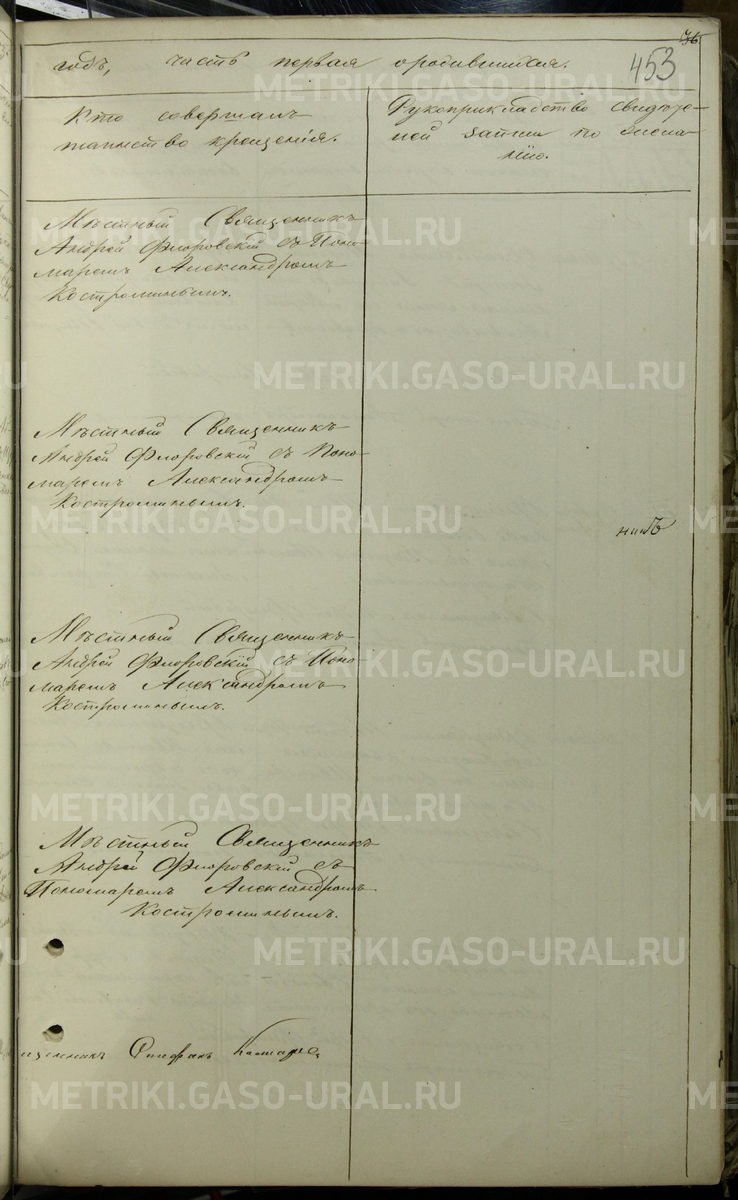 76
453
годъ, часть первая о родившихся.
Кто совершалъ
таинство крещенія.
Рукоприкладство свидѣте-
лей записи по жела-
нію.
Мѣстный Священникъ
Андрей Флоровскій съ Поно-
маремъ Александромъ
Костроминымъ.
Мѣстный Священникъ
Андрей Флоровскій съ Поно-
маремъ Александромъ
Костроминымъ.
Мѣстный Священникъ
Андрей Флоровскій съ Поно
маремъ Александромъ
Костроминымъ.
Мѣстный Священникъ
Андрей Флоровскій съ
Пономаремъ Александромъ
Костроминымъ.
щенникъ
METRIKI.GASO-URAL.RU